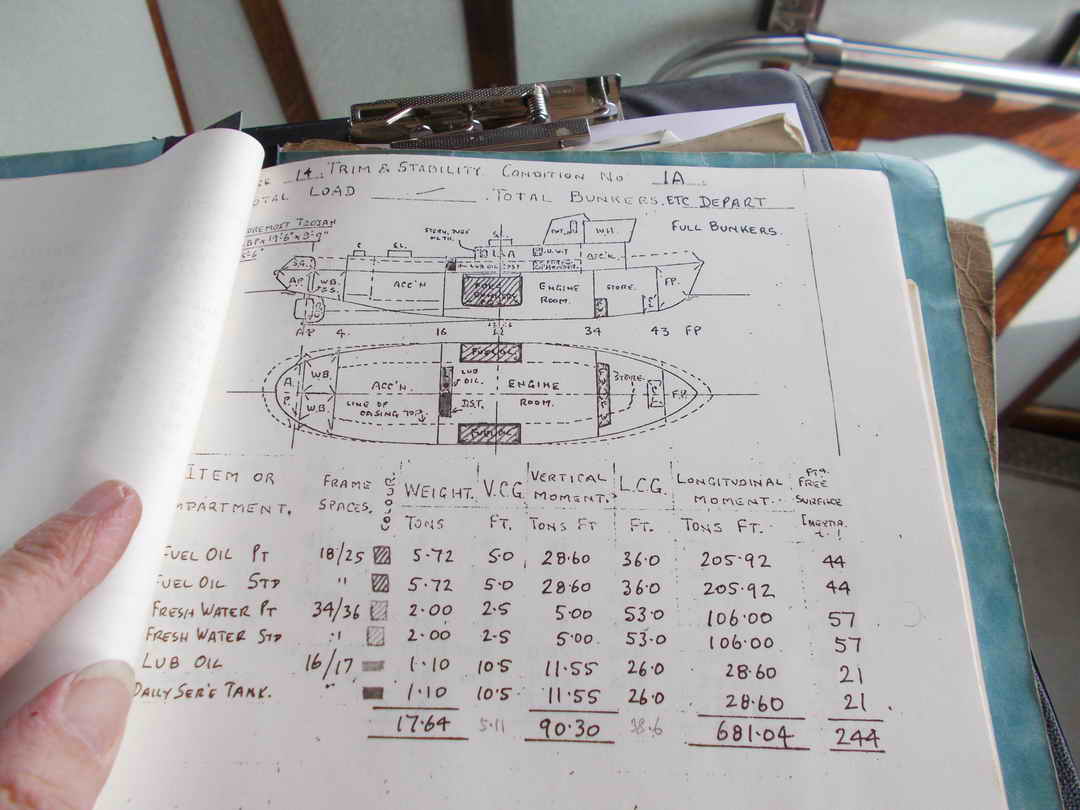 14 TRIM & STABILITY CONDITION NO 1A
LOAD TOTAL BUNKERS. ETC DEPART
TROJAN
FULL BUNKERS.
W.H.
L.S.A
ACC'N.
A.P. W.B. ACC'N ENGINE ROOM. STORE. F.P.
AP 4 16 22 34 43 FP
W.B. FUEL OIL
A.P. ACC'N. LUB OIL. ENGINE ROOM. STORE. F.P.
W.B. LINE OF CASING TOP. D.S.T.
FUEL OIL
ITEM OR FRAME COLOUR. WEIGHT. V.C.G. VERTICAL MOMENT. L.C.G. LONGITUDINAL MOMENT. FREE SURFACE
SPACES. TONS FT. TONS FT FT. TONS FT. INERTIA.
FUEL OIL PT 18/25 5.72 5.0 28.60 36.0 205.92 44
FUEL OIL STD " 5.72 5.0 28.60 36.0 205.92 44
FRESH WATER PT 34/36 2.00 2.5 5.00 53.0 106.00 57
FRESH WATER STD " 2.00 2.5 5.00 53.0 106.00 57
LUB OIL 16/17 1.10 10.5 11.55 26.0 28.60 21
DAILY SER'E TANK. " 1.10 10.5 11.55 26.0 28.60 21
17.64 5.11 90.30 38.6 681.04 244